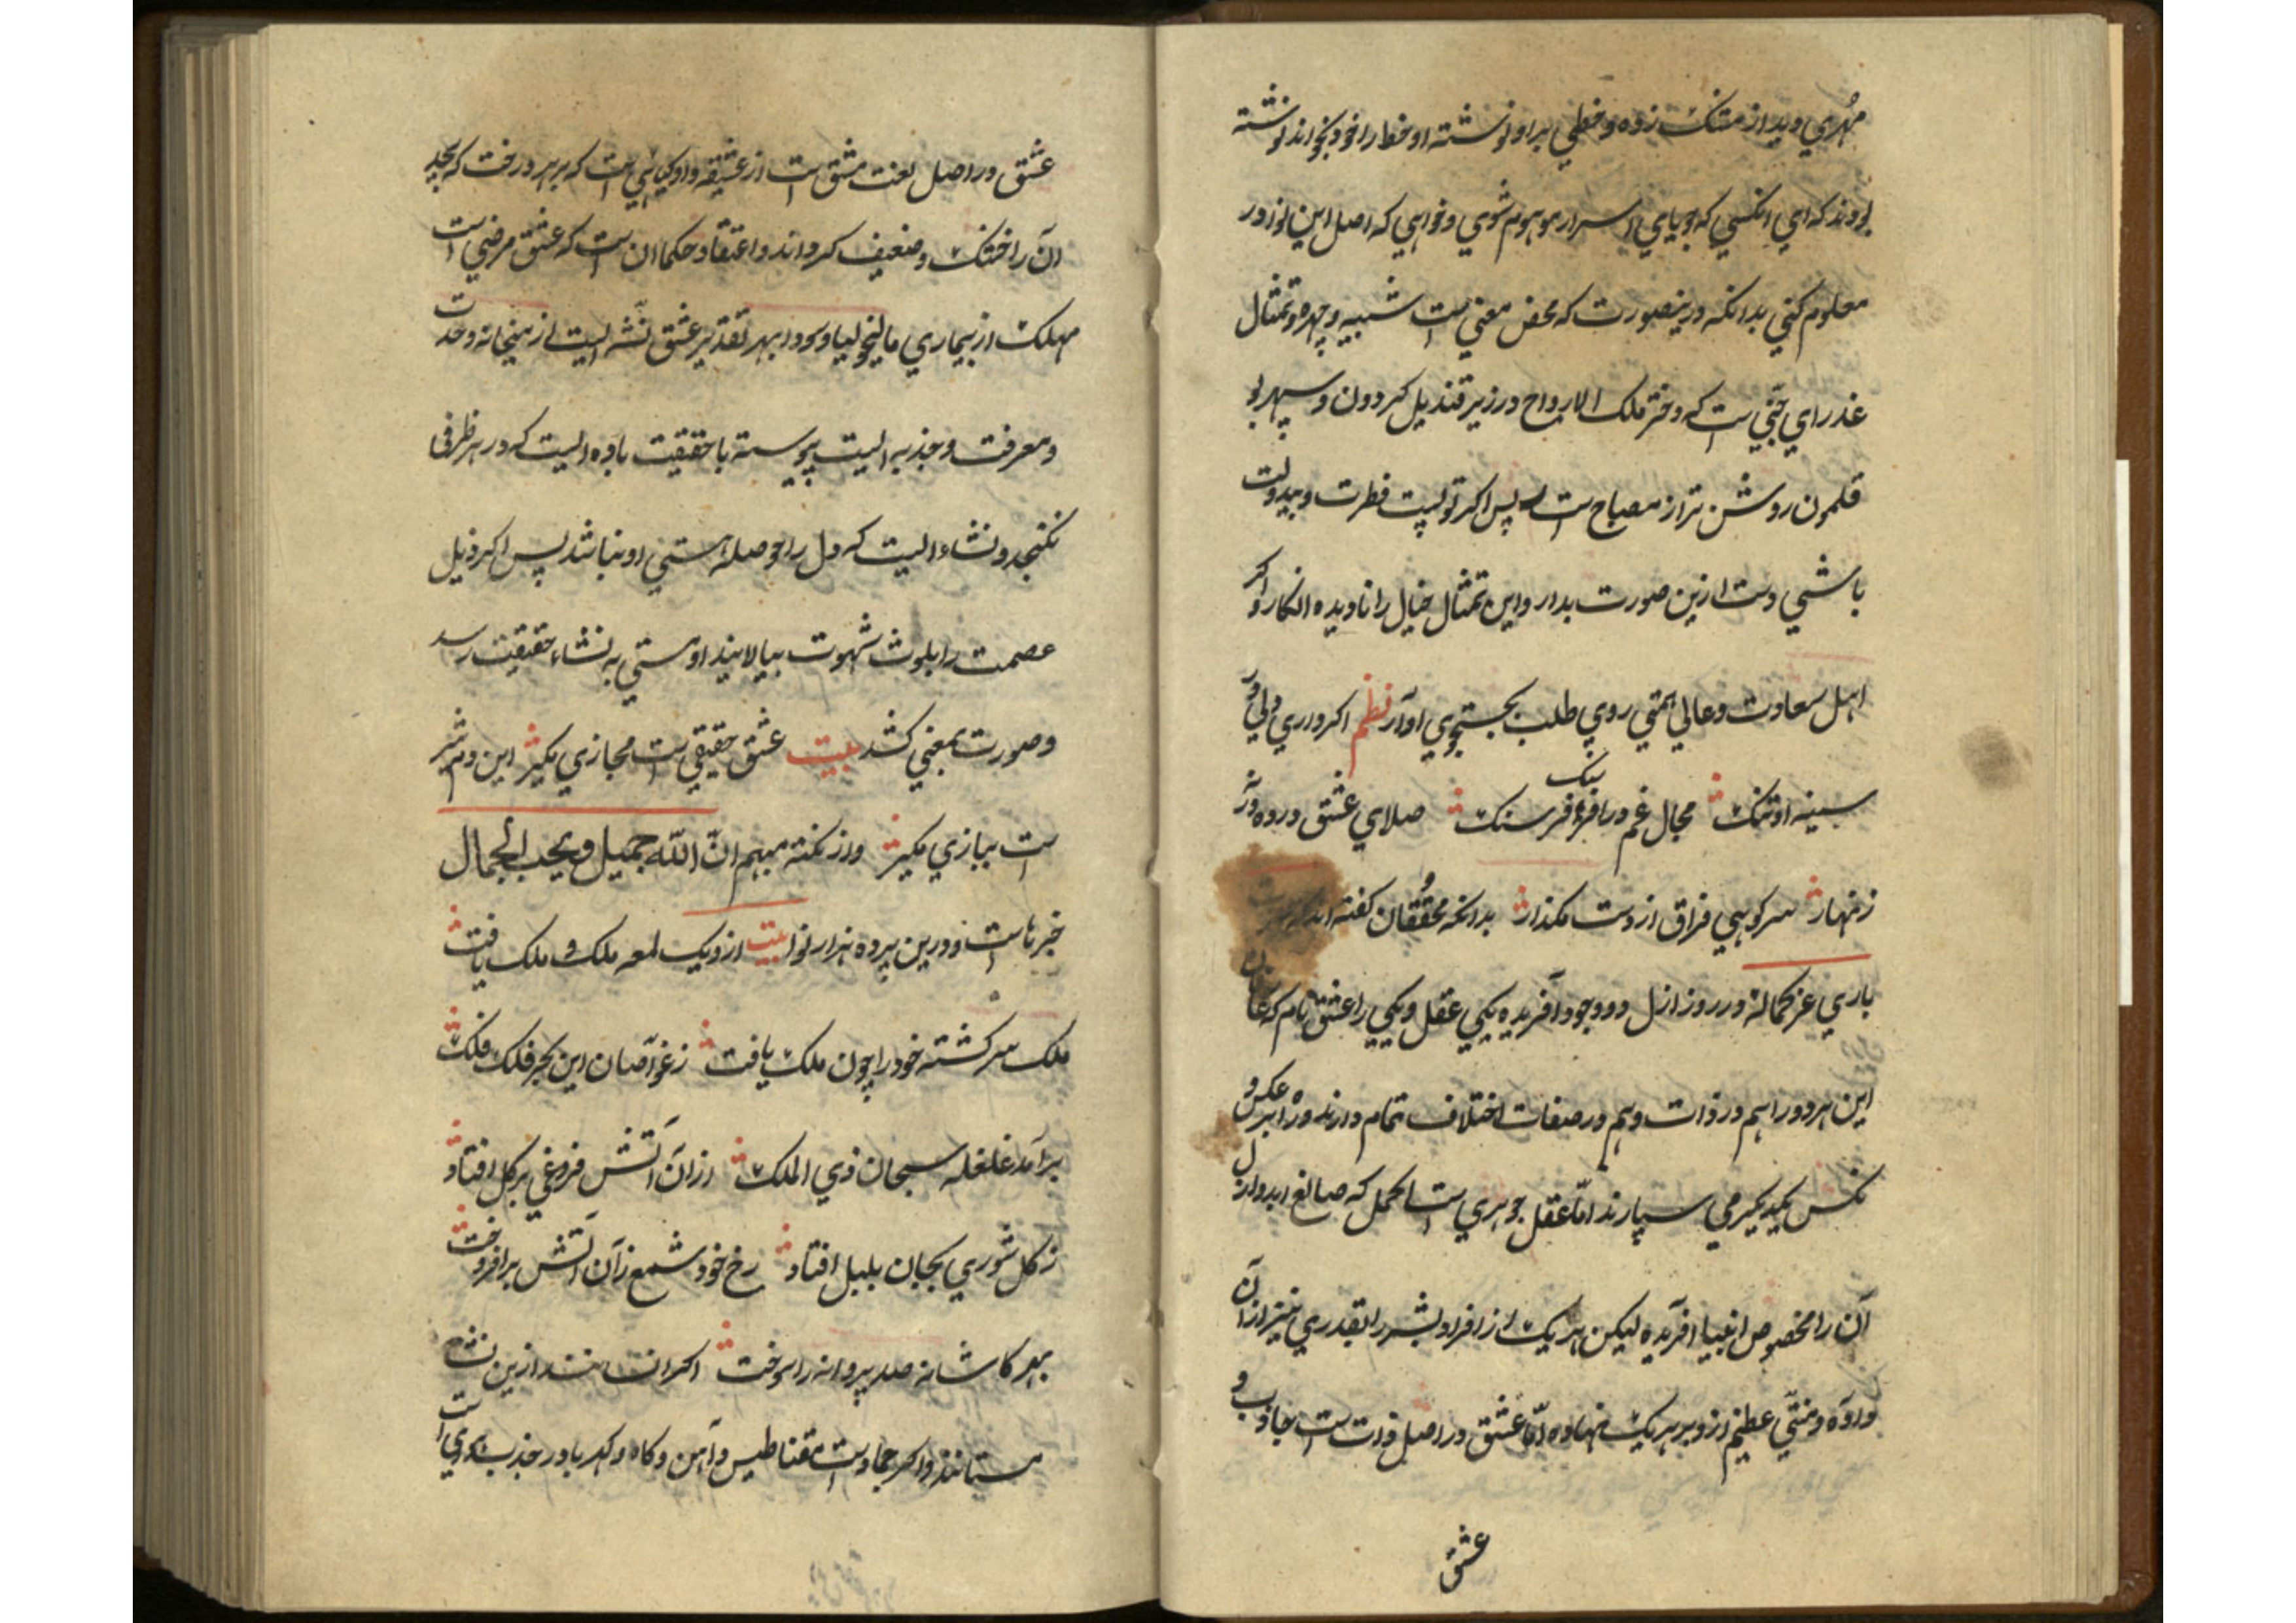 مهُري دید از مشک زده و خطي بر او نوشته او خط را خود بخواند نوشته
بودند که اي انکسي که جویاي اسرار موهوم شوي و خواهي که اصل این نور در
معلوم کني بدانکه درینصورت که محض معني است شبیه و چهره و تمثال
عذراي جنّي است که دختر ملک الارواح در زیر قندیل کردون و سپهر بو
قلمون روشن تر از مصباح است پس اکر تو پست فطرت و بیدولت
باشي دست ازین صورت بدار و این تمثال خیال را نادیده انکار و اکر
اهل سعادت و عالي همتي روي طلب بجستجوي او آر نظم اکر داري دلي در
سینه او تنک مجال غم در افرهنک فرسنک صلاي عشق در ده ورنه
زنهار سر کوهي فراق از دست مکذار بدانکه محُققان کفته اند که
باري عز کماله در روز ازل دو وجود آفریده یکي عقل و یکي را عشق نام که
این هر دو را هم در ذات و هم در صفات اختلاف تمام دارند و راه بر عکس و
نکس یکدیکر مي سپارند امّا عقل جوهري است اکمل که صانع ابد و ازل
آن را مخصوص انبیا آفریده لیکن هر یک از افراد بشر را بقدري نیز از آن
داده و منتّي عظیم ازو بر هر یک نهاده امّا عشق در اصل ذات است جاذب و
عشق
عشق در اصل لغت مشق است از عشیقه و او کیاهي است که بر هر درخت که بجد
آن را خشک و ضعیف کرداند و اعتقاد حکما ان است که عشق مرضي است
مهلک از بیماري مالیخولیا و سودا بهر تقدیر عشق نشّه ایست از میخانه وحدت
و معرفت و جذبه ایست پیوسته با حقیقت باده ایست که در هر ظرفي
نکنجد و نشاء ایست که دل را حوصلهٔ هستي او نباشد پس اکر ذیل
عصمت را بلوث شهوت بیالایند او مستي به نشاء حقیقت رسد
و صورت بمعني کشد بیت عشق حقیقي است مجازي مکیر این دم شیر
است ببازي مکیر و از نکته مبهم انّ الله جمیل و یحب الجمال
خبرهاست و درین پرده هزار نوا بیت ازو یک لمعه ملک و ملک یافت
ملک سرکشته خود را چون ملک یافت ز غوّاصان این بحر فلک فلک
بر آمد غلغله سبحان ذي الملک از ان آتش فروغي بر کل افتاد
ز کل شوري بجان بلبل افتاد رخ خود شمع زآن آتش بر افروخت
بهر کاشانه صد پروانه را سوخت اکر انسانند ازین نشاء
مستانند و اکر جماد است مقناطیس و آهن و کاه و کهربا در جذب است